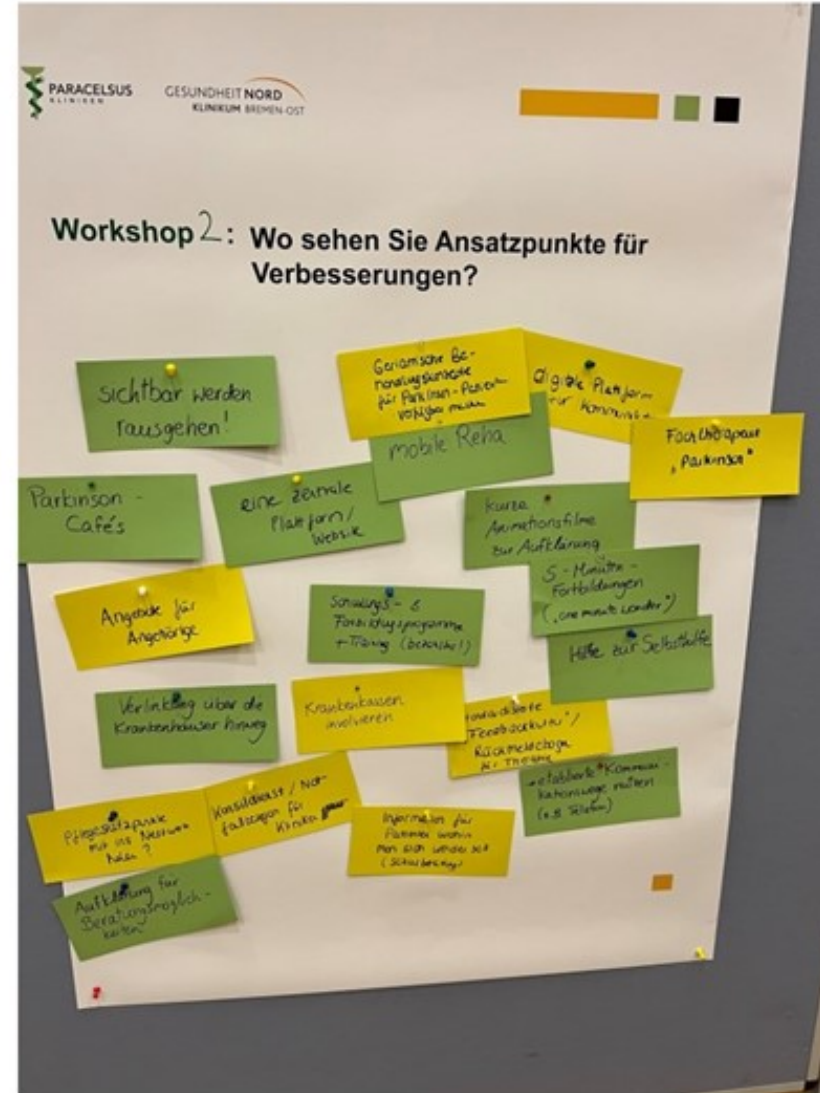 PARACELSUS
KLINIKEN
GESUNDHEIT NORD
KLINIKUM BREMEN-OST
Workshop 2: Wo sehen Sie Ansatzpunkte für
Verbesserungen?
sichtbar werden
rausgehen!
Geriatrische Be-
handlungskonzepte
für Parkinson-Patienten
verfügbar machen
digitale Plattform
zur
Fachtherapeut
"Parkinson"
mobile Reha
Parkinson-
Cafés
eine zentrale
Plattform/
Website
kurze
Animationsfilme
zur Aufklärung
5-Minuten-
Fortbildungen
("one minute wonder")
Angebote für
Angehörige
Schulungs- &
Fortbildungsprogramme
+ Training
Hilfe zur Selbsthilfe
Verlinkung über die
Krankenhäuser hinweg
Krankenkassen
involvieren
"Feedbackkultur"/
Rückmeldebogen
etablierte Kommuni-
kationswege nutzen
(z.B. Telefon)
Pflegestützpunkte
mit ins Netzwerk
holen?
Konsildienst / Not-
fallzeiten für
Klinika
Information für
Patienten wohin
man sich wenden soll
Aufklärung für
Beratungsmöglich-
keiten